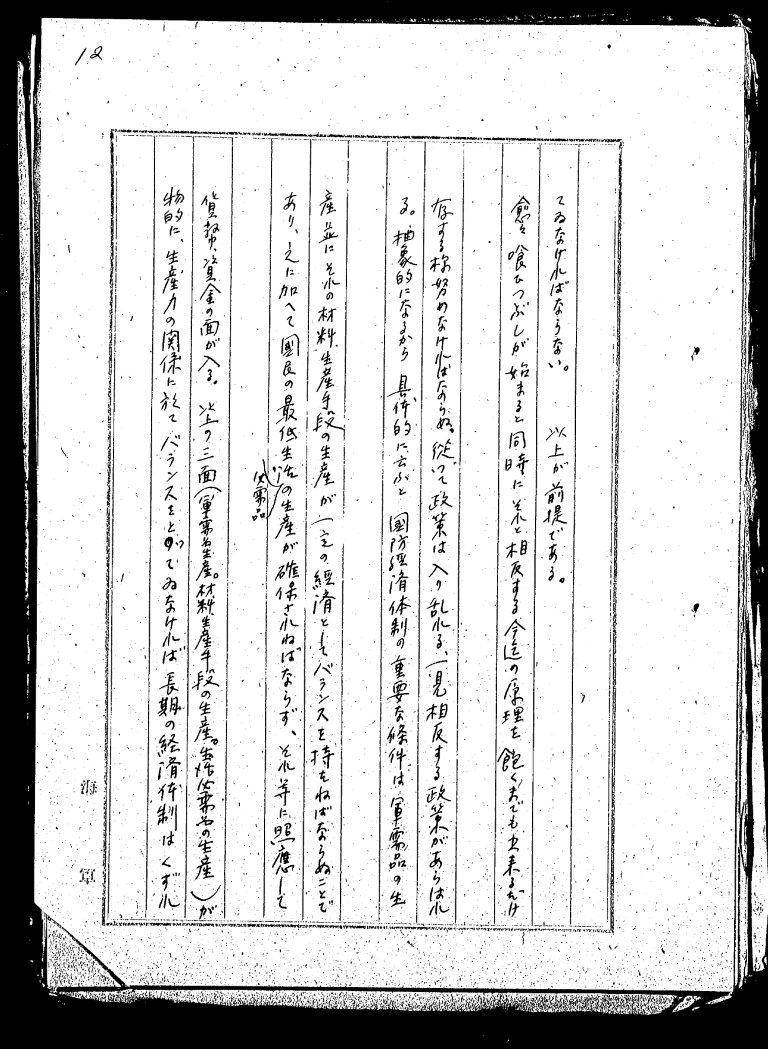 12
てゐなければならない。　以上が前提である。
愈々喰ひつぶしが始まると同時にそれと相反する今迄の原理を飽くまでも出来るだけ
存する様努めなければならぬ。従つて政策は入り乱れる、一見相反する政策があらはれ
る。抽象的になるから具体的に云ふと国防経済体制の重要な條件は軍需品の生
産並にそれの材料、生産手段の生産が一定の經済としてバランスを持たねばならぬことで
あり、之に加へて國民の最低生活必需品の生産が確保されねばならず、それ等に照應して
貨幣、資金の面が入る。以上の三面(軍需品生産。材料、生産手段の生産。生活必需品の生産)が
物的に、生産力の関係に於てバランスをとつてゐなければ長期の経済体制はくずれ
海軍